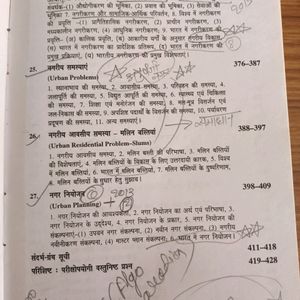 1. औद्योगीकरण की भूमिका, 2. प्रवास की भूमिका, 3. सेवाओं की
भूमिका 7. नगरीकरण और सामाजिक-आर्थिक परिवर्तन, 8. विश्व में नगरीकरण
की प्रवृत्ति (1. प्रागैतिहासिक नगरीकरण, 2. प्राचीन नगरीकरण, 3.
मध्यकालीन नगरीकरण, 4. आधुनिक नगरीकरण), 9. भारत में नगरीकरण की
(स) भारत में नगरीकरण का प्रादेशिक प्रतिरूप,
प्रमुख प्रक्रियाएं, भारतीय नगरीकरण की प्रमुख विशेषताएं।
25. नगरीय समस्याएं 376–387
(Urban Problems)
1. स्थानाभाव की समस्या, 2. आवासीय समस्या, 3. परिवहन की समस्या, 4.
जलापूर्ति की समस्या, 5. विद्युत आपूर्ति की समस्या, 6. स्वास्थ्य की
समस्या, 7. शिक्षा एवं मनोरंजन की समस्या, 8. मल-मूत्र विसर्जन एवं
जल निकासी की समस्या, 9. अपशिष्ट पदार्थों के विसर्जन की समस्या, 10. पर्यावरण
प्रदूषण की समस्या, 11. अन्य समस्याएं।
26. नगरीय आवसीय समस्या – मलिन बस्तियां 388–397
(Urban Residential Problem-Slums)
1. नगरीय आवासीय समस्या, 2. मलिन बस्ती की परिभाषा, 3. मलिन बस्तियों
की विशेषताएं, 4. मलिन बस्तियों के विकास के लिए उत्तरदायी कारक, 5. विश्व
में मलिन बस्तियां, 6. भारत में मलिन बस्तियां, 7. मलिन बस्तियों के दुष्परिणाम,
8. मलिन बस्तियों के सुधार हेतु सुझाव।
27. नगर नियोजन 2013 398–409
(Urban Planning)
1. नगर नियोजन की आवश्यकता, 2. नगर नियोजन का अर्थ एवं परिभाषा, 3.
नगर नियोजन के उद्देश्य, 4. नगर नियोजन के प्रकार, 5. नगर नियोजन की
संकल्पनाएं-(1) उपवन नगर संकल्पना, (2) नवीन नगर संकल्पना, (3) नगरीय
नवीनीकरण संकल्पना, (4) मास्टर प्लान संकल्पना, 6. भारत में नगर नियोजन।
संदर्भ-ग्रंथ सूची 411–418
परिशिष्ट : परीक्षोपयोगी वस्तुनिष्ठ प्रश्न 419–428